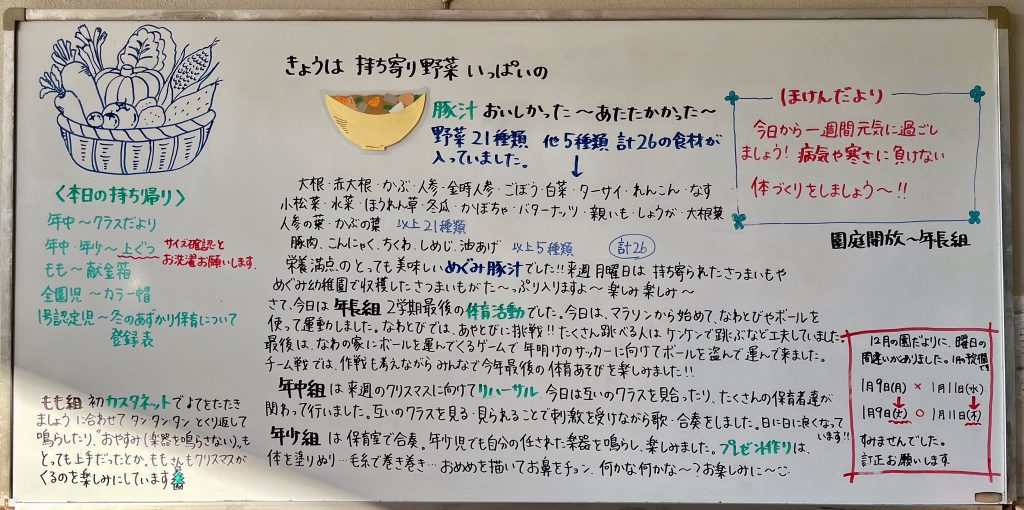 きょうは 持ち寄り野菜 いっぱいの
豚汁 おいしかった 〜あたたかかった〜
野菜21種類 他5種類 計26の食材が
入っていました。
大根・赤大根・かぶ・人参・金時人参・ごぼう・白菜・ターサイ・れんこん・なす
小松菜・水菜・ほうれん草・冬瓜・かぼちゃ・バターナッツ・親いも・しょうが・大根葉
人参の葉・かぶの葉 以上21種類
豚肉、こんにゃく、ちくわ、しめじ、油あげ 以上5種類 計26
栄養満点、のとっても美味しいめぐみ豚汁でした!!来週月曜日は 持ち寄られたさつまいもや
めぐみ幼稚園で収穫したさつまいもがた〜っぷり入りますよ〜 楽しみ楽しみ〜
さて、今日は 年長組 2学期最後の体育活動でした。今日は、マラソンから始めて、なわとびやボールを
使って運動しました。なわとびでは、あやとびに挑戦!!たくさん跳べる人はケンケンで跳ぶなど工夫していました。
最後は、なわの家にボールを運んでくるゲームで 年明けのサッカーに向けてボールを盗んで運んで来ました。
チーム戦では、作戦も考えながらみんなで今年最後の体育あそびを楽しみました!!
年中組は来週のクリスマスに向けてリハーサル。今日は互いのクラスを見合ったり、たくさんの保育者達が
関わって行いました。互いのクラスを見る・見られることで刺激を受けながら歌・合奏をしました。日に日に良くなって
います!!
年少組 は保育室で合奏。年少児でも自分の任された楽器を鳴らし、楽しみました。プレゼント作りは、
体を塗りぬり…毛糸で巻き巻き…おめめを描いてお鼻をチョン、何かな何かな〜?お楽しみに〜
ほけんだより
今日から一週間元気に過ごし
ましょう! 病気や寒さに負けない
体づくりをしましょう〜!!
園庭開放〜年長組
〈本日の持ち帰り〉
年中〜クラスだより
年中・年少〜上ぐつ サイズ確認と
お洗濯お願いします.
もも〜献金箱
全園児〜カラー帽
1号認定児〜冬のあずかり保育について
登録表
もも組 初カスタネットで手をたたき
ましょうに合わせてタンタンタンとくり返して
鳴らしたり、おやすみ(楽器を鳴らさない)も
とっても上手だったとか、ももさんもクリスマスが
くるのを楽しみにしています
12月の園だよりに、曜日の
間違いがありました。1月の予定欄
です
1月9日(月) × 1月11日(水)
1月9日(土) ○ 1月11日(木)
すみませんでした。
訂正お願いします.